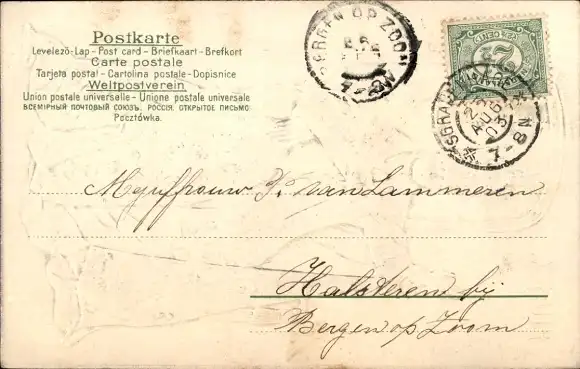 Postkarte
Levelező-Lap - Post card - Briefkaart - Brefkort
Carte postale
Tarjeta postal - Cartolina postale - Dopisnice
Weltpostverein
Union postale universelle - Unione postale universale
ВСЕМІРНЫЙ ПОЧТОВЫЙ СОЮЗЪ. РОССІЯ. ОТКРЫТОЕ ПИСЬМО
Pocztówka.
BERGEN OP ZOOM
7-8N
2½
CENT
AUG
03
7-8N
Mejuffrouw P. van Lammeren
Halsteren bij
Bergen op Zoom